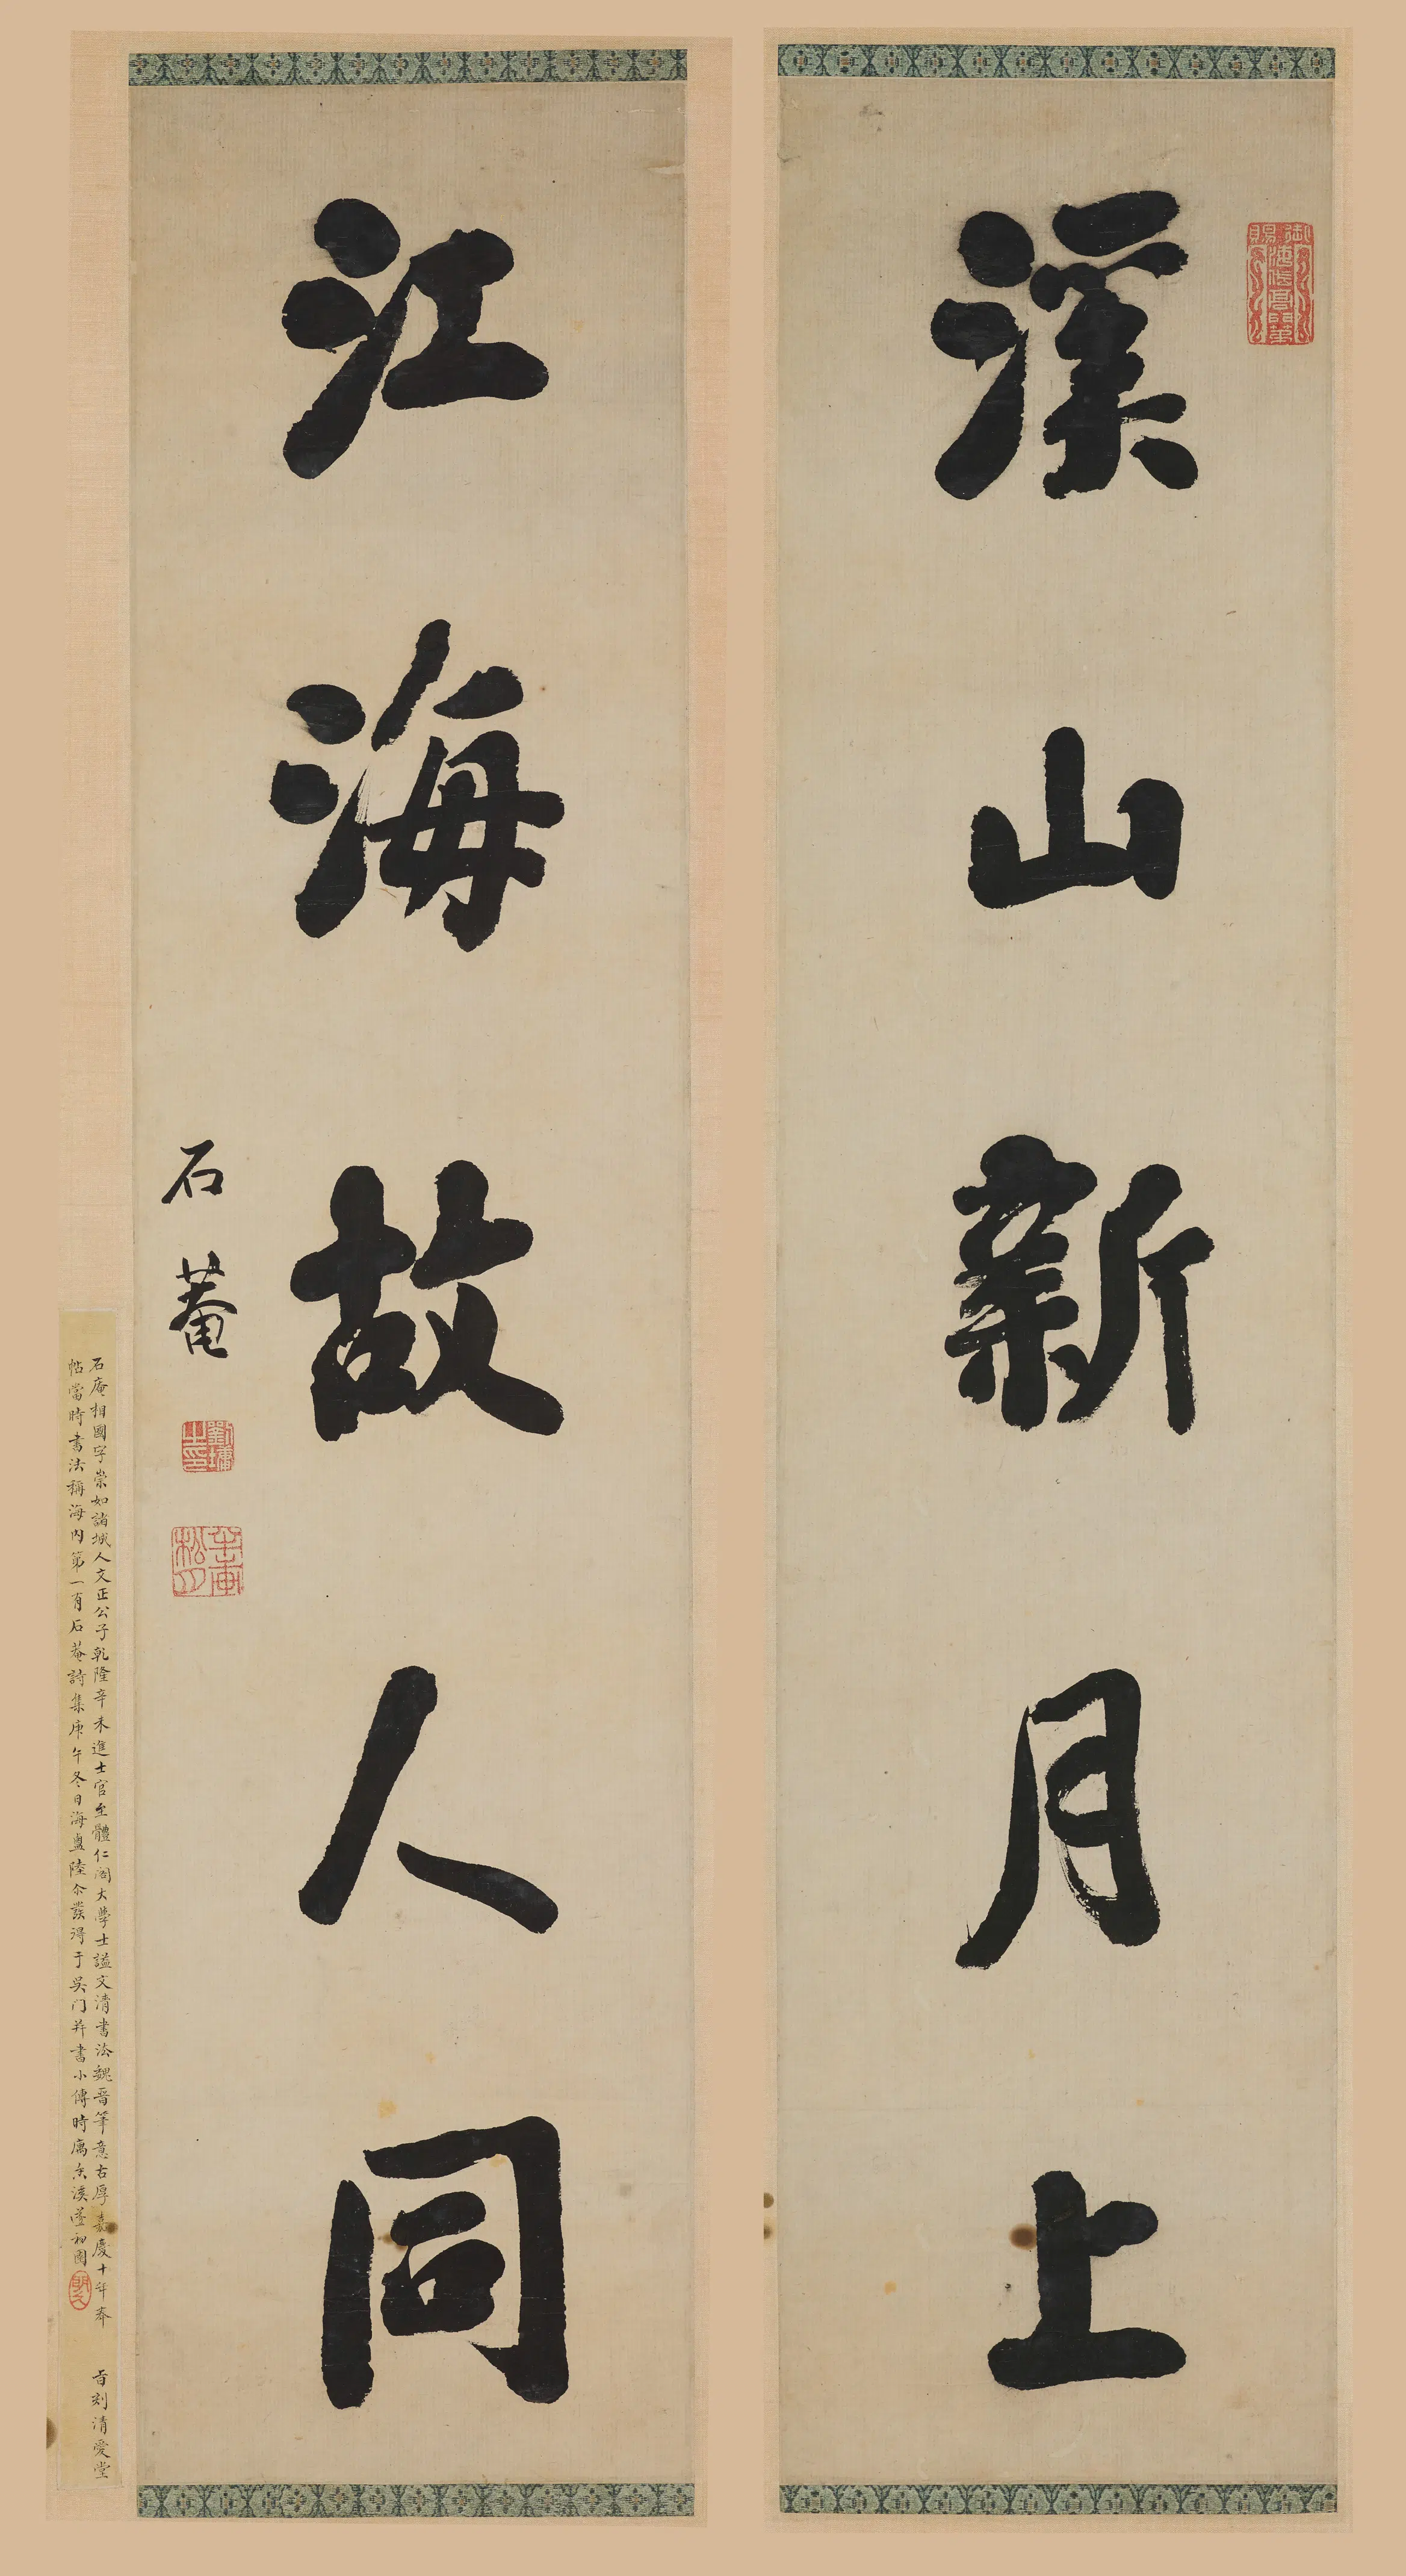 溪山新月上
御賜海岱高門第
江海故人同
石菴
劉墉之印
石庵相國字崇如諸城人文正公子乾隆辛未進士官至體仁閣大學士謚文清書法魏晋筆意古厚嘉慶十年奉 旨刻清愛堂
帖當時書法稱海内第一有石菴詩集庚午冬日海鹽陸尒發得于吴门并書小傳時寓